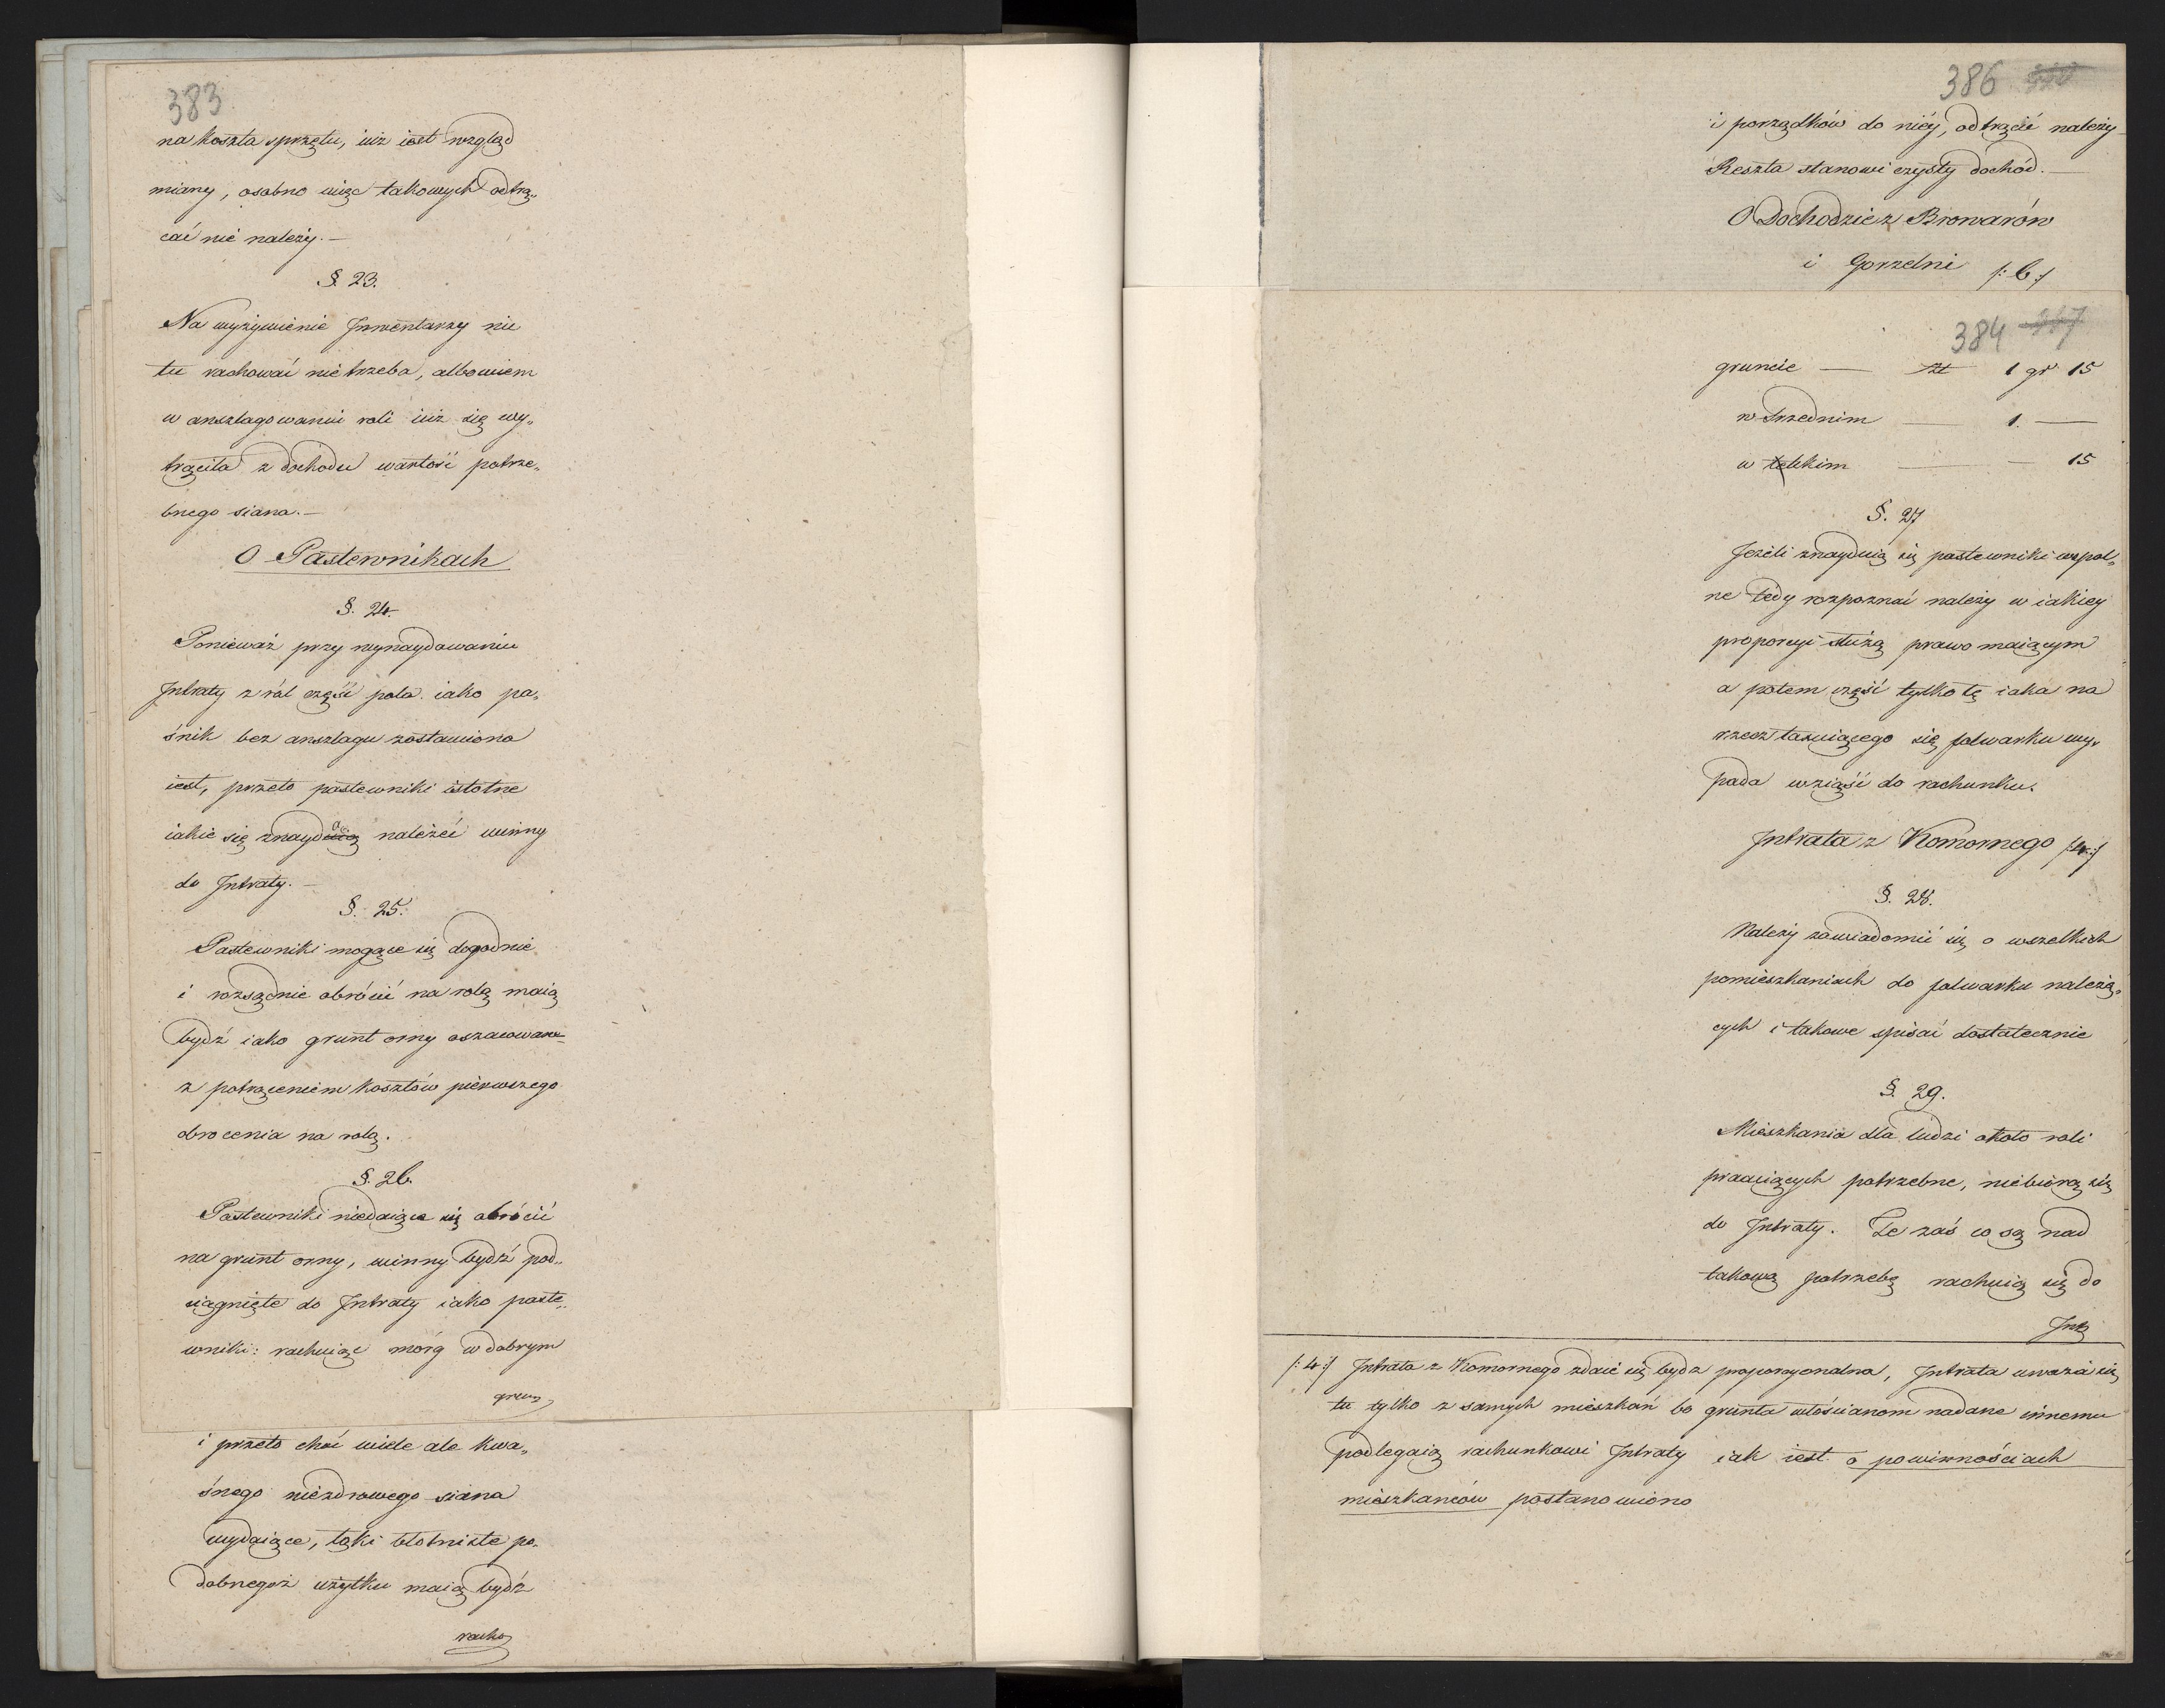 383
na koszta sprzętu, iuż iest wzgląd
miany, osobno więc takowych odtrą„
cać nie należy. —
§. 23.
Na wyżywienie Inwentarzy nic
tu rachować nie trzeba, albowiem
w anszlagowaniu roli iuż się wy„
trąciła z dochodu wartość potrze„
bnego siana. —
O Pastewnikach
§. 24.
Ponieważ przy wynaydowaniu
Intraty z ról część pola iako pa„
śnik bez anszlagu zostawiona
iest, przeto pastewniki istotne
iakie się znayd należeć winny
do Intraty. —
§. 25.
Pastewniki mogące się dogodnie
i rozsądnie obrócić na rolą maią
bydź iako grunt orny oszacowane
z potrąceniem kosztów pierwszego
obrocenia na rolą.
§. 26.
Pastewniki niedaiące się obrócić
na grunt orny, winny bydź pod„
ciągnięte do Intraty iako paste„
wniki: rachuiąc morg w dobrym
grun
i przeto choć wiele ale kwa„
śnego niezdrowego siana
wydaiące, łąki błotniste po„
dobnegoż użytku maią bydź
racho
386
i porządków do niéy, odtrącić należy
Reszta stanowi czysty dochód. —
O Dochodzie z Browarów
i Gorzelni /: 6 :/
384 387
gruncie — zł 1 gr 15
w Srzednim — 1. —
w letkim — — 15
§. 27
Jeżeli znayduią się pastewniki wspol„
ne tedy rozpoznać należy w iakiey
proporcyi służą prawo maiącym
a potem część tylko tę iaka na
rzecz taxuiącego się folwarku wy„
pada wziąść do rachunku.
Intrata z Komornego /:4:/
§. 28.
Należy zawiadomić się o wszelkich
pomieszkaniach do folwarku należą„
cych i takowe spisać dostatecznie
§. 29.
Mieszkania dla ludzi około roli
pracuiących potrzebne, niebiorą się
do Intraty. Te zaś co są nad
takową potrzebę rachuią się do
Int
/: 4 :/ Intrata z Komornego zdaie się bydz proporcyonalna, Intrata uważa się
tu tylko z samych mieszkań bo grunta włościanom nadane innemu
podlegaią rachunkowi Intraty iak iest o powinnościach
mieszkańców postanowiono